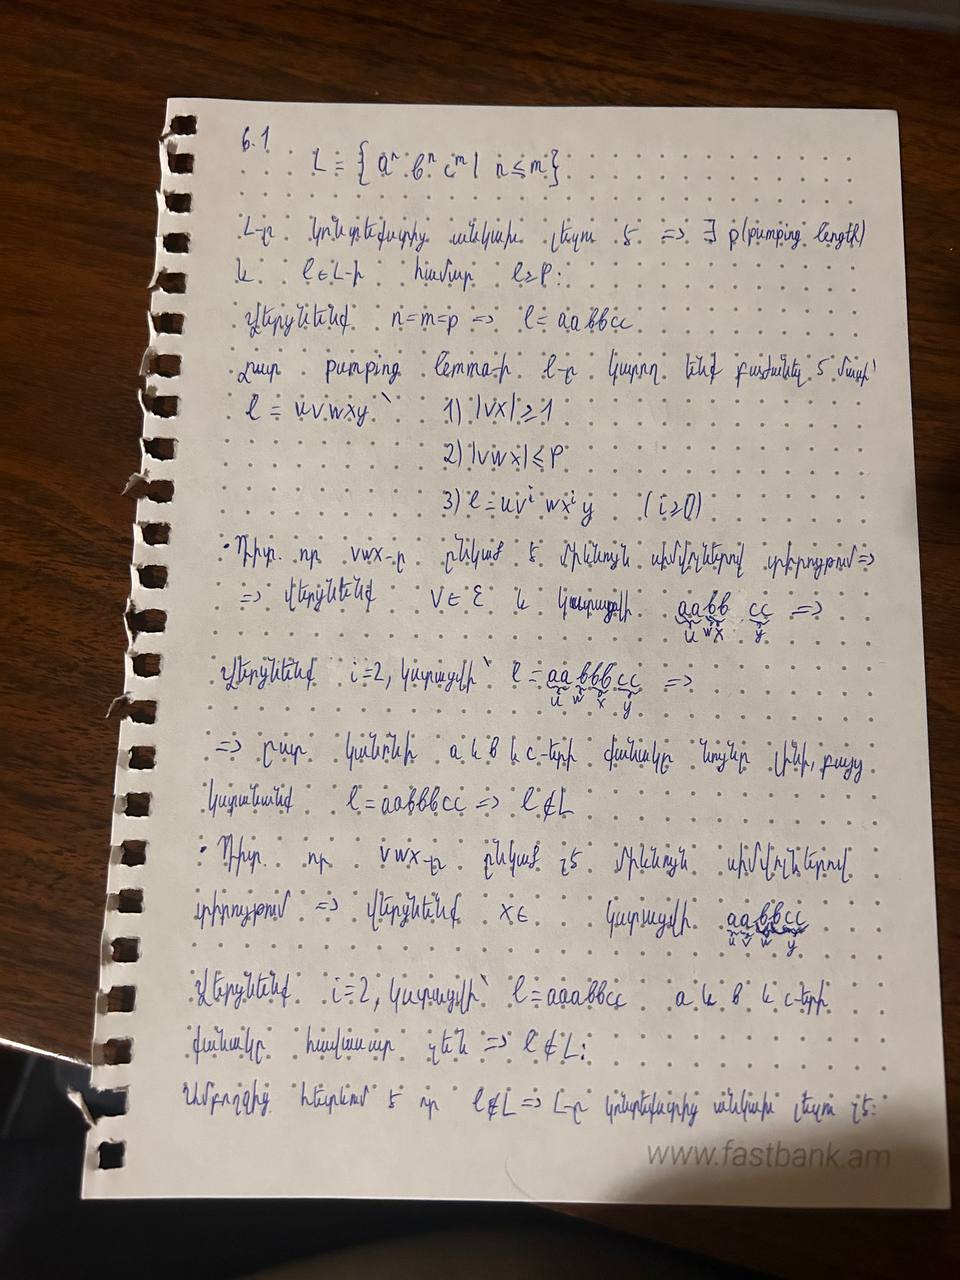 6.1
L = {aⁿ bⁿ cᵐ | n ≤ m}
L-ը կոնտեքստից անկախ լեզու է => ∃ p(pumping length)
և l ∈ L-ի համար l ≥ P:
Վերցնենք n=m=p => l = aabbcc
ըստ pumping lemma-ի l-ը կարող ենք բաժանել 5 մասի՝
l = uvwxy՝ 1) |vx| ≥ 1
2) |vwx| ≤ P
3) l = uvⁱ wxⁱ y (i ≥ 0)
• Դիտ. որ vwx-ը ընկած է միևնույն սիմվոլներով տիրույթում =>
=> վերցնենք v ∈ Ɛ և կստացվի aabb cc =>
u w x y
Վերցնենք i=2, կստացվի՝ l = aabbbcc =>
u w x y
=> ըստ կանոնի a և b և c-երի քանակը նույնը լինի, բայց
կստանանք l = aabbbcc => l ∉ L
• Դիտ. որ vwx-ը ընկած չէ միևնույն սիմվոլներով
տիրույթում => վերցնենք x ∈ կստացվի aabbcc
u v w y
Վերցնենք i=2, կստացվի՝ l = aaabbcc a և b և c-երի
քանակը հավասար չեն => l ∉ L:
Ամբողջից հետևում է որ l ∉ L => L-ը կոնտեքստից անկախ լեզու չէ:
www.fastbank.am